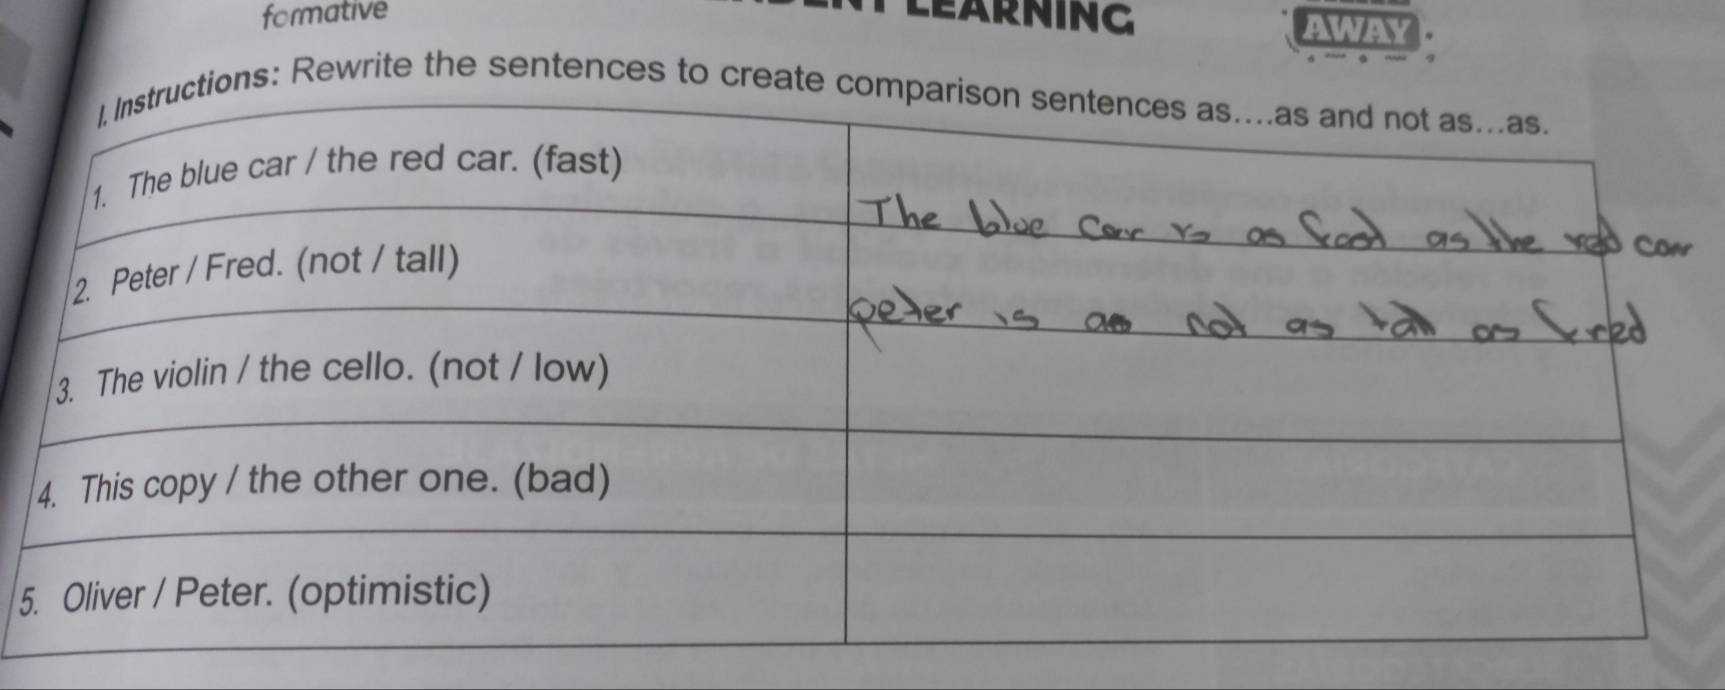 formative
LEARNING
AWAY
I. Instructions: Rewrite the sentences to create comparison sentences as....as and not as...as.
1. The blue car / the red car. (fast)
The bloe car is as as the red car
2. Peter / Fred. (not / tall)
peter is as not as tall as fred
3. The violin / the cello. (not / low)
4. This copy / the other one. (bad)
5. Oliver / Peter. (optimistic)